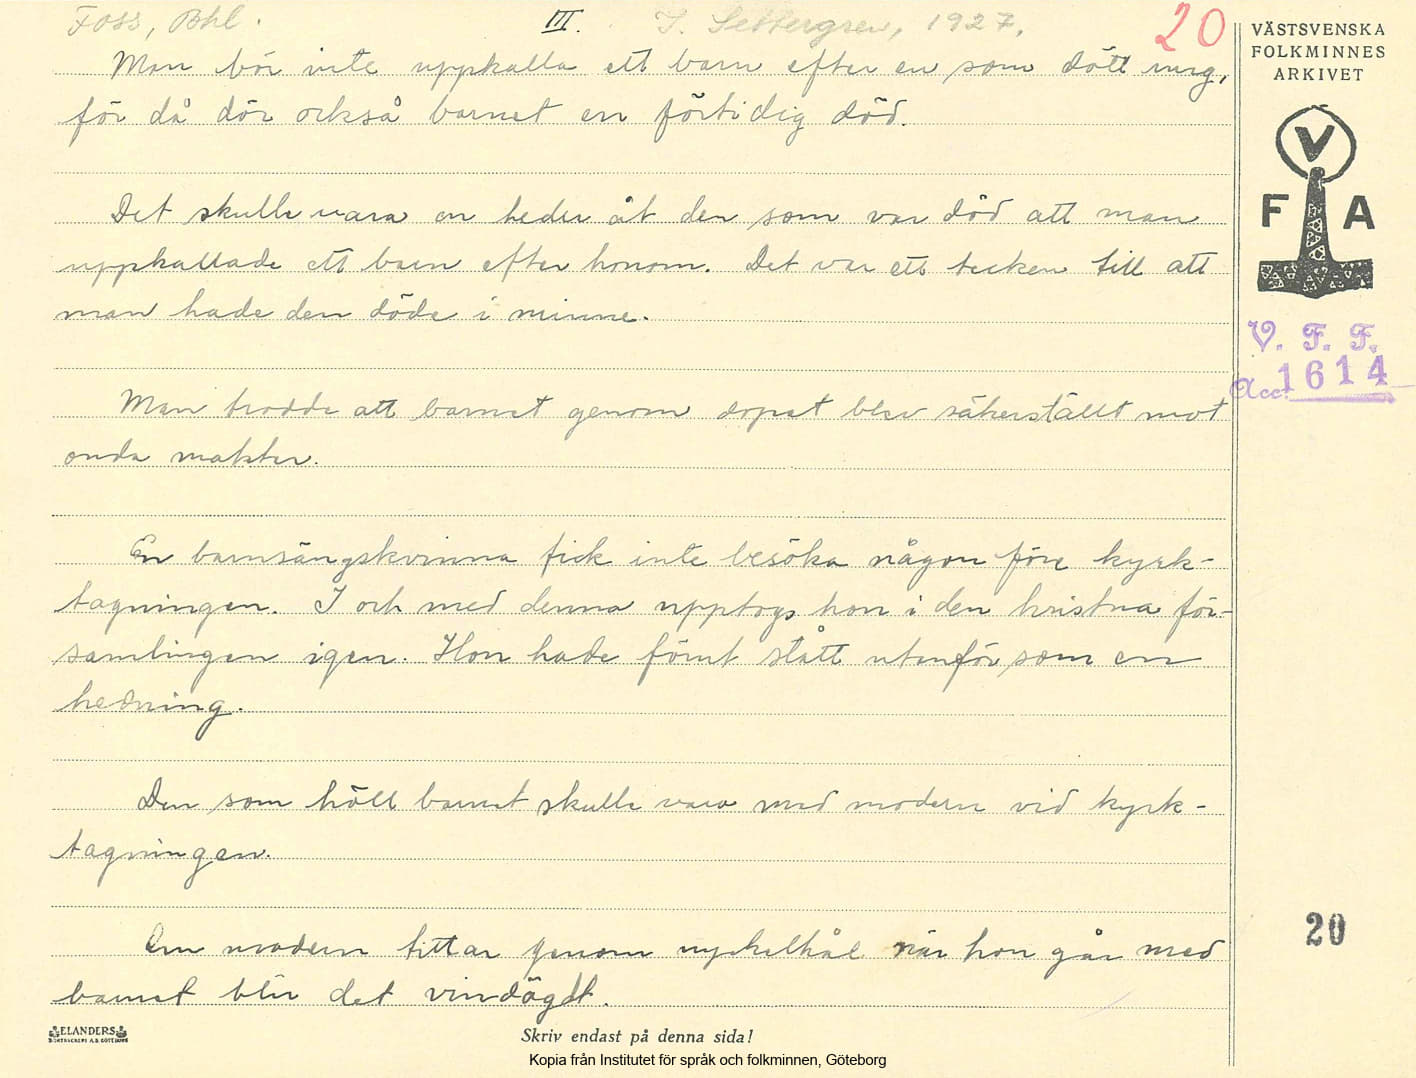 Foss, Bhl. III. I. Settergren, 1927. 20
Man bör inte uppkalla ett barn efter en som dött ung,
för då dör också barnet en förtidig död.
Det skulle vara en heder åt den som var död att man
uppkallade ett barn efter honom. Det var ett tecken till att
man hade den döde i minne.
Man trodde att barnet genom dopet blev säkerställt mot
onda makter.
En barnsängskvinna fick inte besöka någon före kyrk-
tagningen. I och med denna upptogs hon i den kristna för-
samlingen igen. Hon hade förut stått utanför som en
hedning.
Den som höll barnet skulle vara med modern vid kyrk-
tagningen.
Om modern tittar genom nyckelhål när hon går med
barnet blir det vindögdt.
VÄSTSVENSKA
FOLKMINNES
ARKIVET
V
F A
V. F. F.
Acc. 1614
20
ELANDERS
Skriv endast på denna sida!
Kopia från Institutet för språk och folkminnen, Göteborg